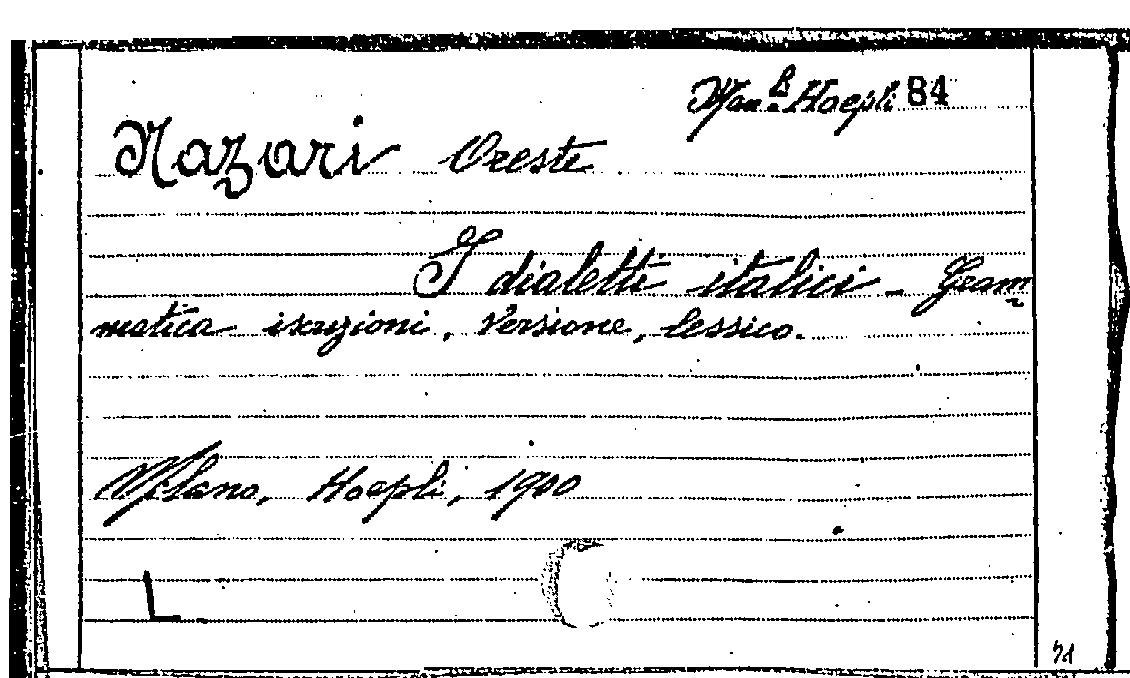 Man. B. Hoepli 84
Nazari Oreste
I dialetti italici - Gram
matica iscrizioni, versione, lessico.
Milano, Hoepli, 1900
L